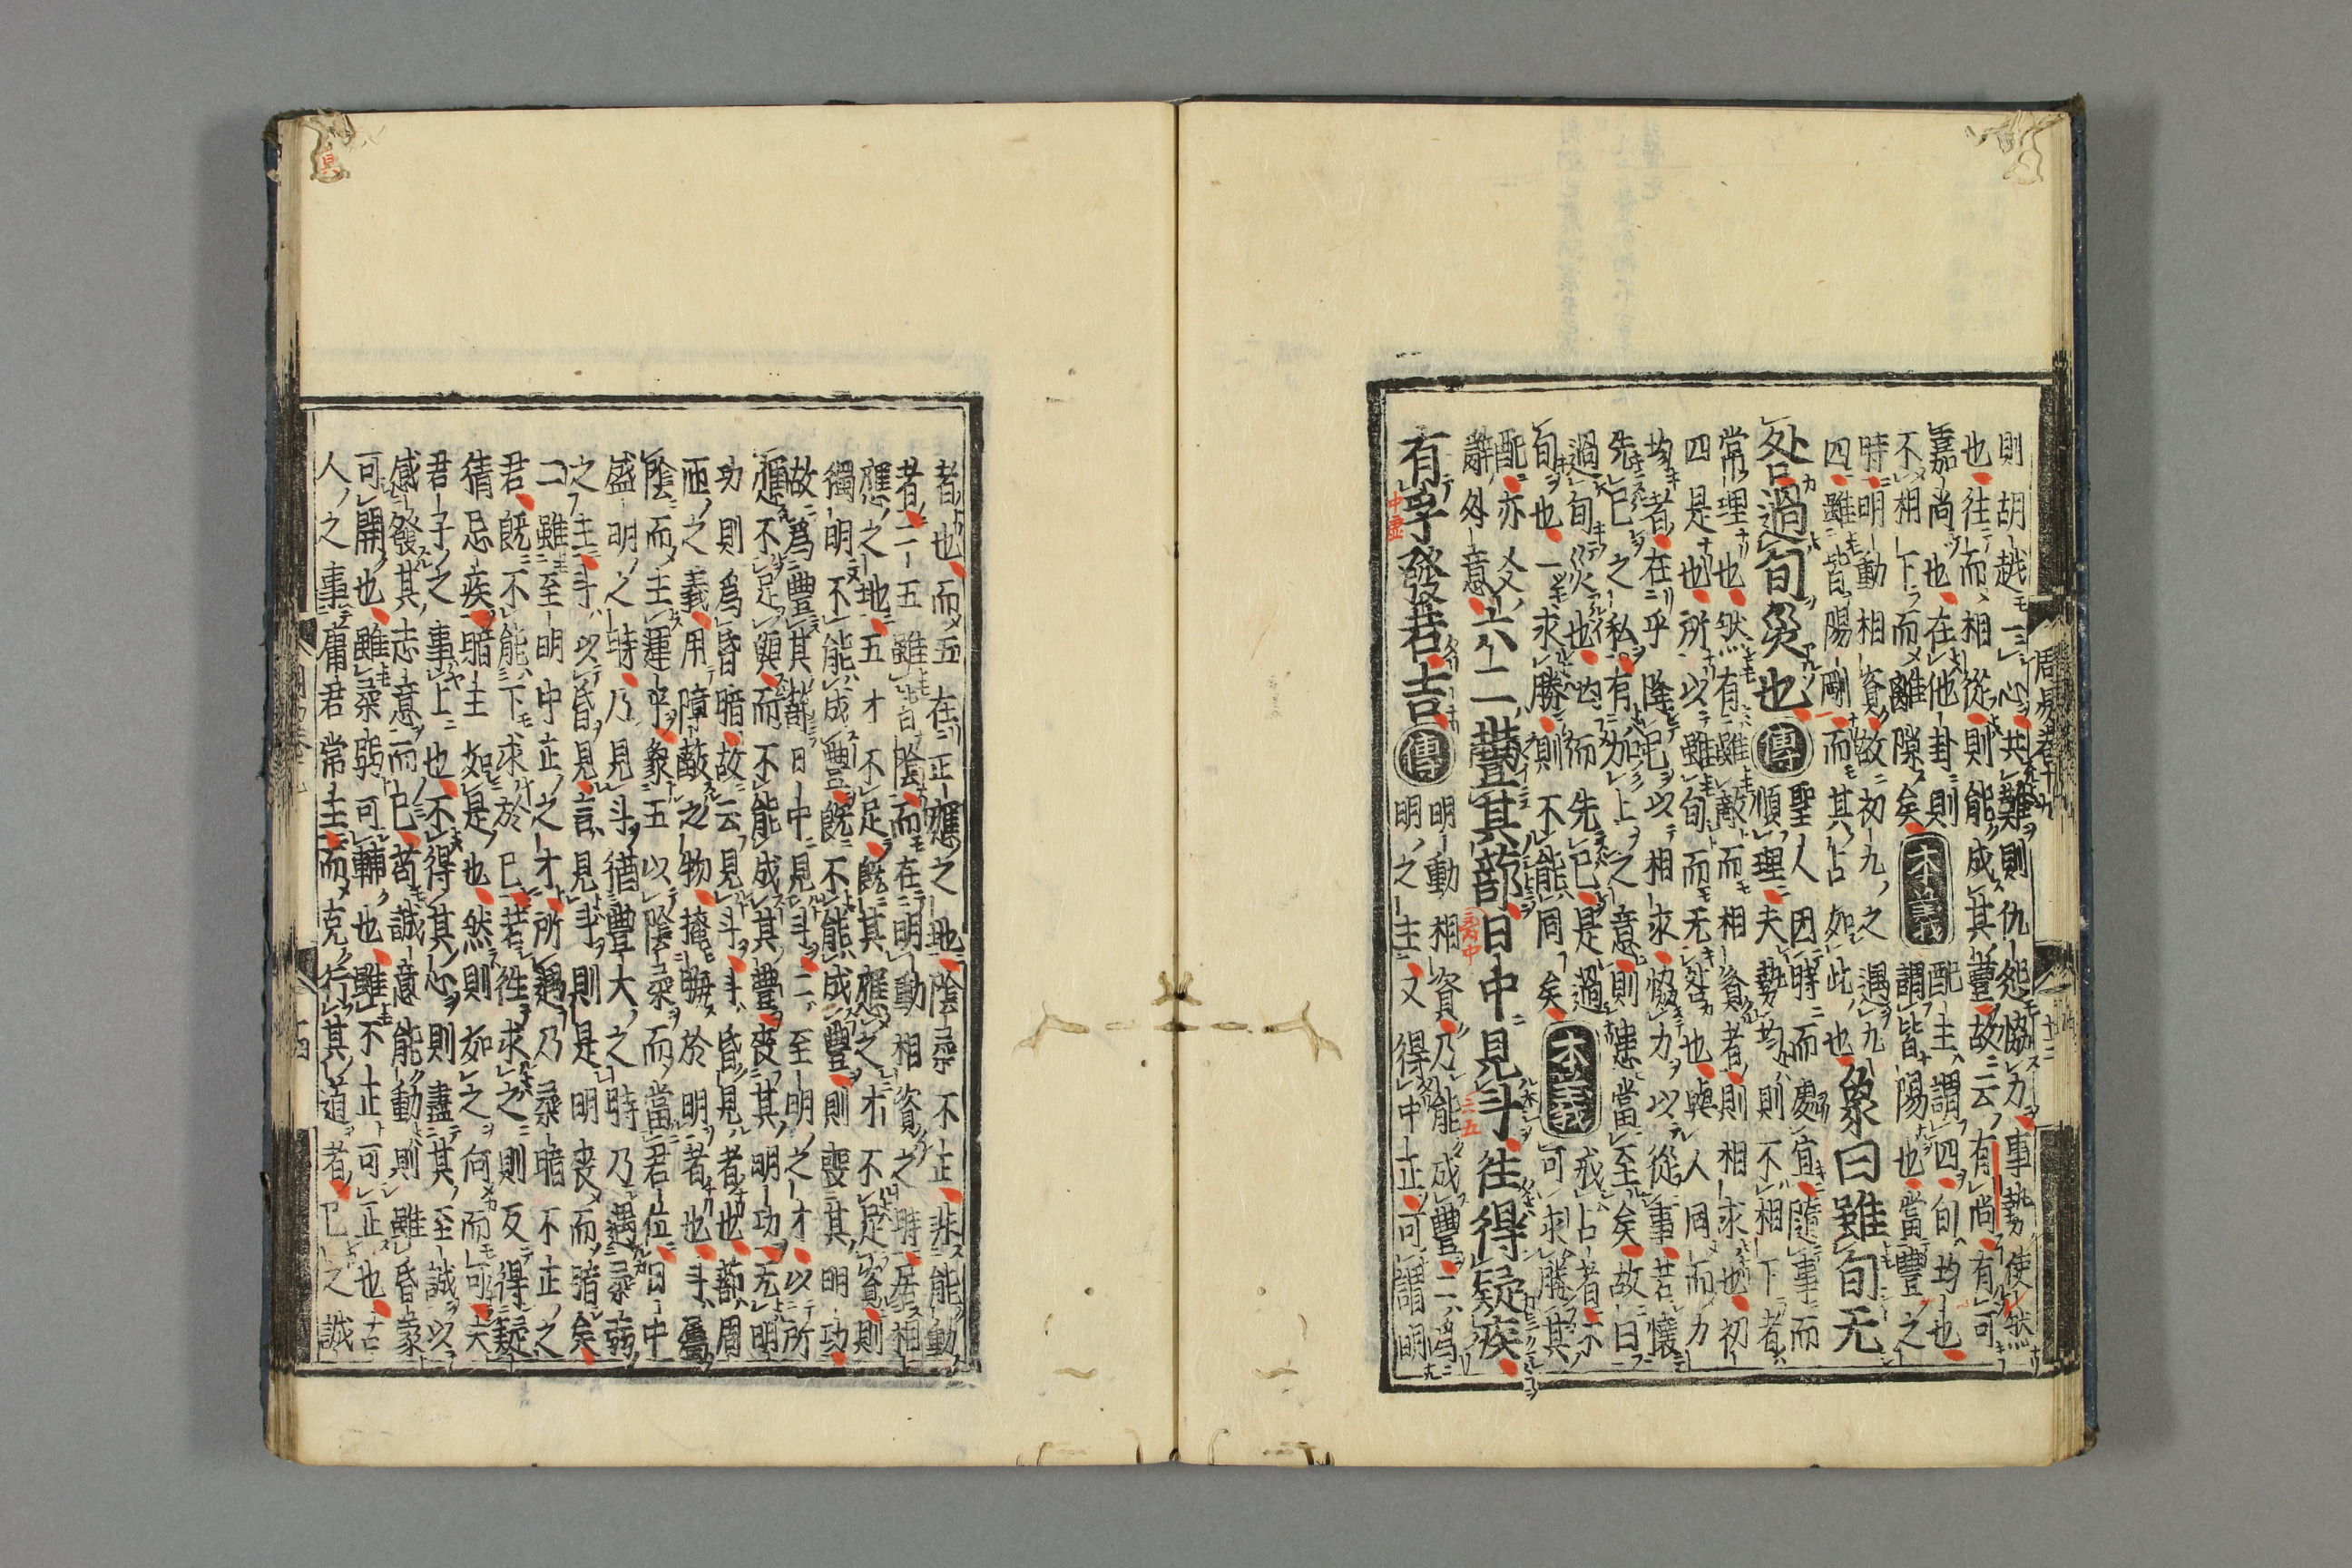 則胡越一心共難則仇怨協力事勢使然
也往而相從則能成其豐故云有尚有可
嘉尚也在他卦則配主謂四旬均也
不相下而離隙矣本義謂皆陽也當豐之
時明動相資故初九之遇九
四雖皆陽剛而其占如此也象曰雖旬无
咎過旬災也傳聖人因時而處宜隨事而
順理夫勢均則不相下者
常理也然有雖敵而相資者則相求也初
四是也所以雖旬而无咎也與人同而力
均者在乎降己以相求協力以從事若懷
先己之私有加上之意則患當至矣故曰
過旬災也均而先己是過
旬也一求勝則不能同矣本義戒占者不可求勝其
配亦爻
辭外意六二豐其蔀日中見斗往得疑疾
有孚發若吉傳明動相資乃能成豐二爲
明之主又得中正可謂明
者也而五在正應之地陰柔不正非能動
者二五雖皆陰而在明動相資之時居相
應之地五才不足既其應之才不足資則
獨明不能成豐既不能成豐則喪其明功
故爲豐其蔀日中見斗二至明之才以所
應不足與而不能成其豐喪其明功无明
功則爲昏暗故云見斗斗昏見者也蔀周
匝之義用障蔽之物掩晦於明者也斗屬
陰而主運乎象五以陰柔而當君位日中
盛明之時乃見斗猶豐大之時乃遇柔弱
之主斗以昏見言見斗則是明喪而暗矣
二雖至明中正之才所遇乃柔暗不正之
君既不能下求於己若往求之則反得疑
猜忌疾暗主如是也然則如之何而可夫
君子之事上也不得其心則盡其至誠以
感發其志意而已苟誠意能動則雖昏蒙
可開也雖柔弱可輔也雖不正可正也古
人之事庸君常主而克行其道者己之誠
周易卷十九
中虛